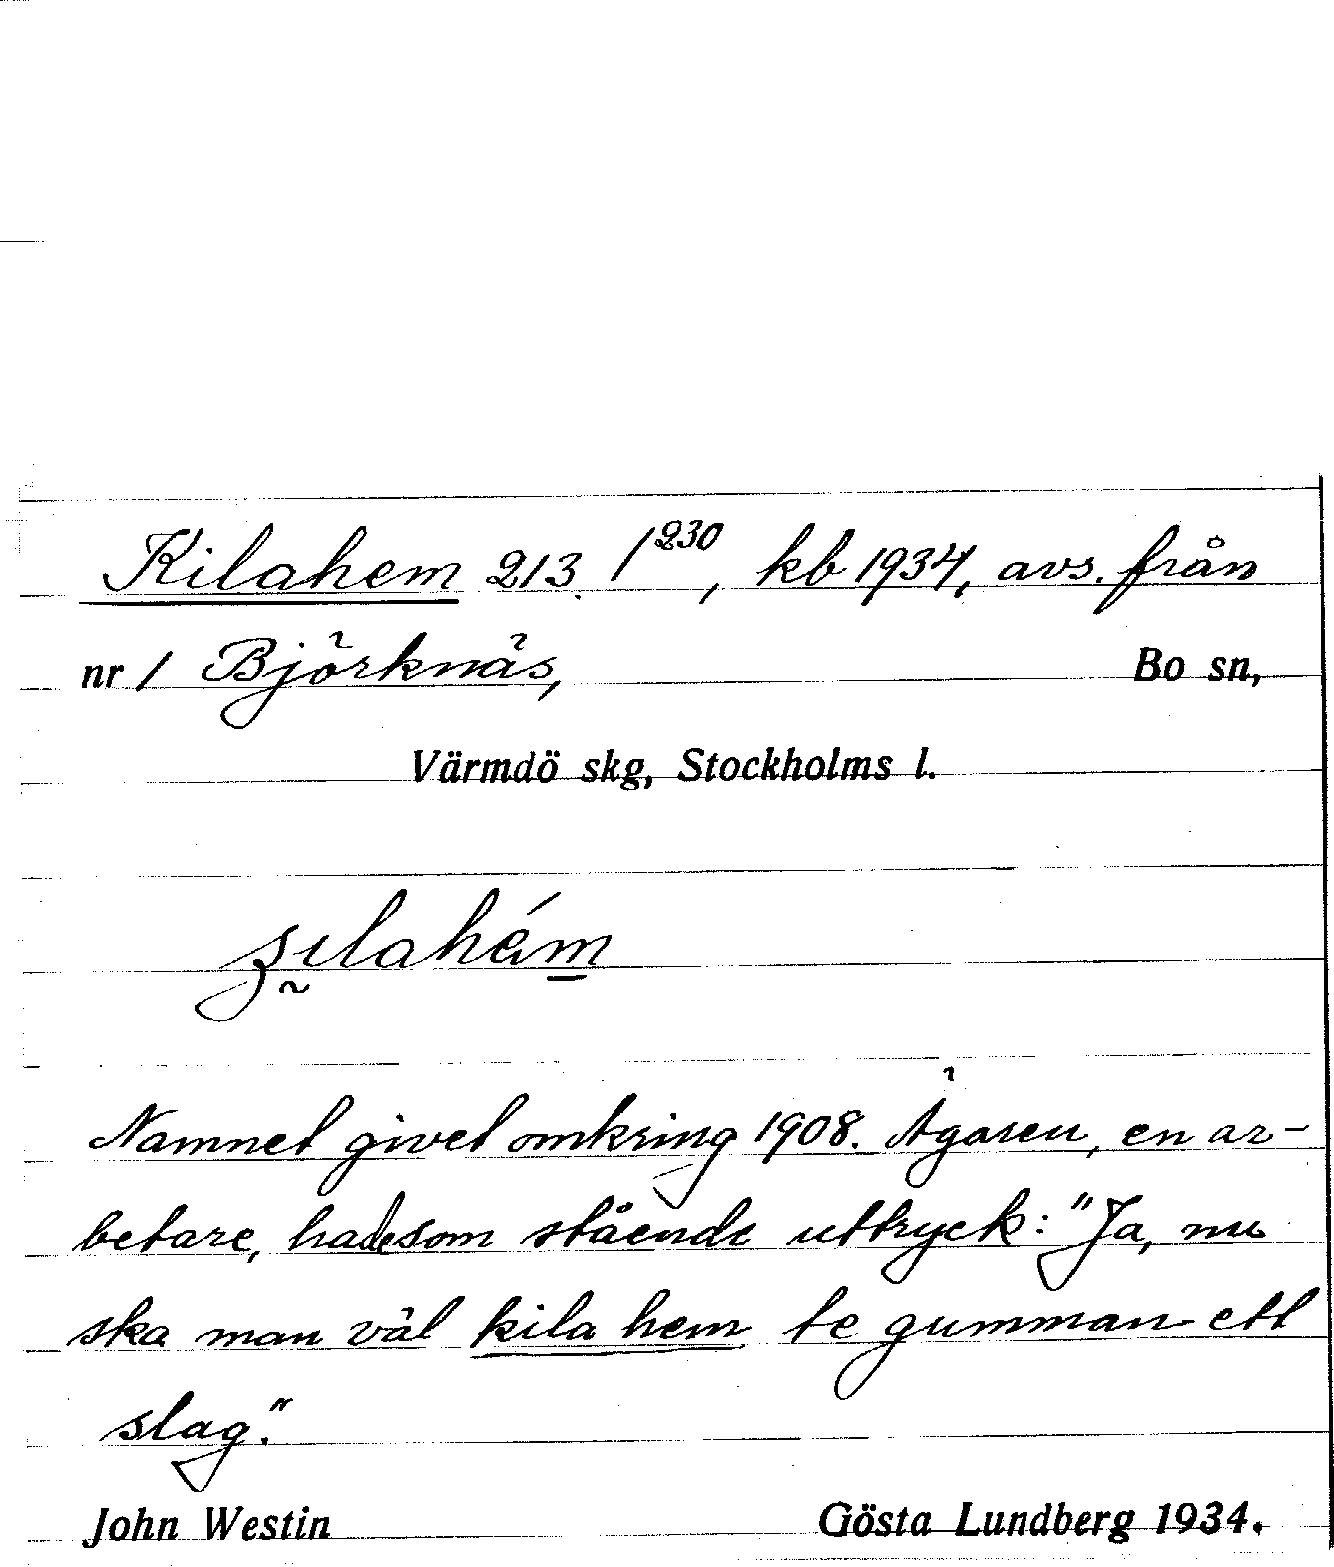 Kilahem 213. 1²³⁰, kb 1934, avs. från
nr 1 Björknäs, Bo sn,
Värmdö skg, Stockholms l.
Namnet givet omkring 1908. Ägaren, en ar-
betare, hade som stående uttryck: "Ja, nu
ska man väl kila hem te gumman ett
slag."
John Westin Gösta Lundberg 1934.